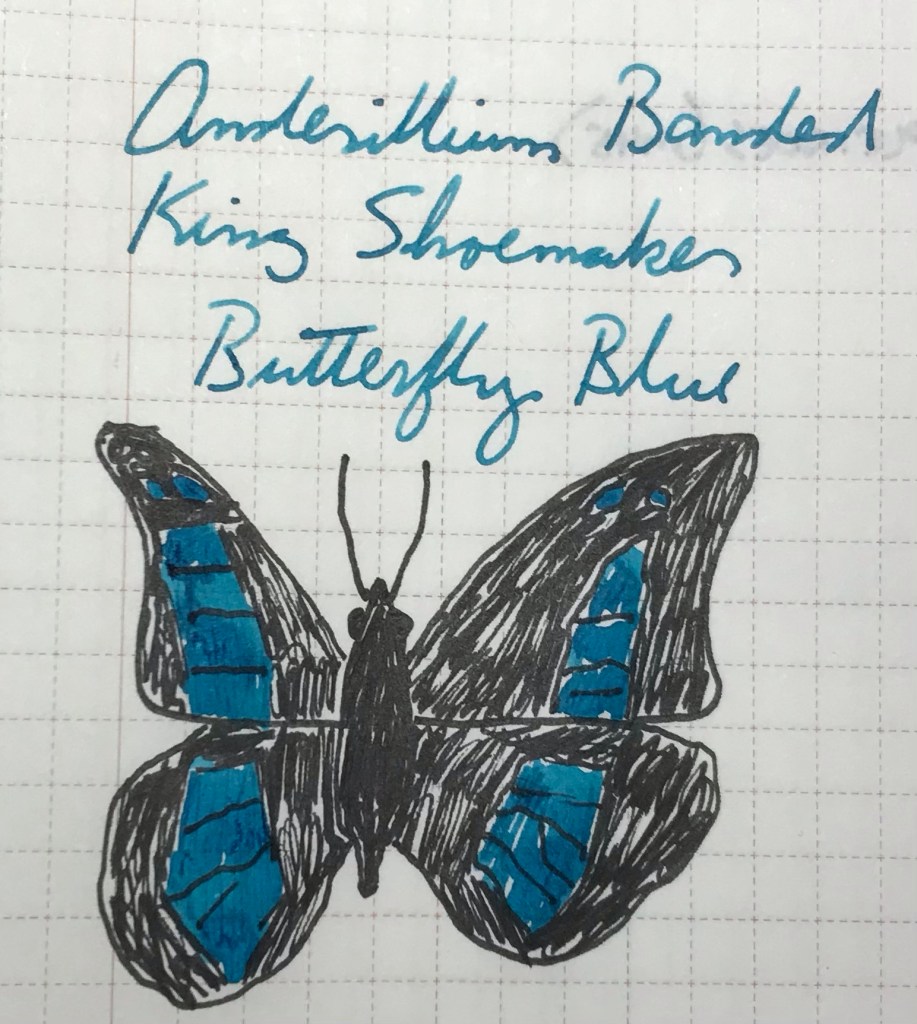 Anderillium Banded
King Shoemaker
Butterfly Blue